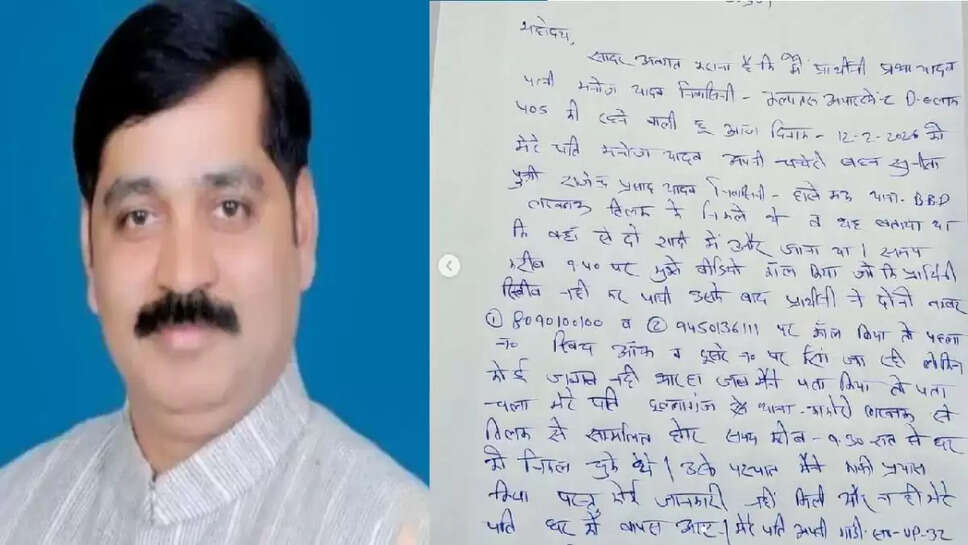 महोदय,
सादर अवगत कराना है कि मैं प्रार्थीनी प्रभा यादव
पत्नी मनोज यादव निवासिनी - अपार्टमेन्ट D-ब्लाक
405 में रहने वाली हूं आज दिनांक - 12-2-2026 को
मेरे पति मनोज यादव अपनी चचेरी बहन सुनीता
पुत्री राजेन्द्र प्रसाद यादव निवासिनी - थाना - BBD
लखनऊ तिलक में निकले थे व यह बताया था
कि वहां से दो शादी में और जाना था। समय
करीब 9:40 पर मुझे वीडियो कॉल किया जो कि प्रार्थिनी
रिसीव नही कर पायी उसके बाद प्रार्थीनी ने दोनो नम्बर
① 8090100100 व ② 9450136111 पर कॉल किया तो पहला
न० स्विच ऑफ व दूसरे न० पर रिंग जा रही लेकिन
कोई जवाब नही आ रहा जब मैने पता किया तो पता
चला मेरे पति थाना - लखनऊ से
तिलक से सामलित होकर समय करीब - 9.30 रात में घर
को निकल चुके थे। उसके पश्चात मैंने काफी प्रयास
किया परन्तु कोई जानकारी नही मिली और न ही मेरे
पति घर में वापस आए। मेरे पति अपनी गाडी UP-32